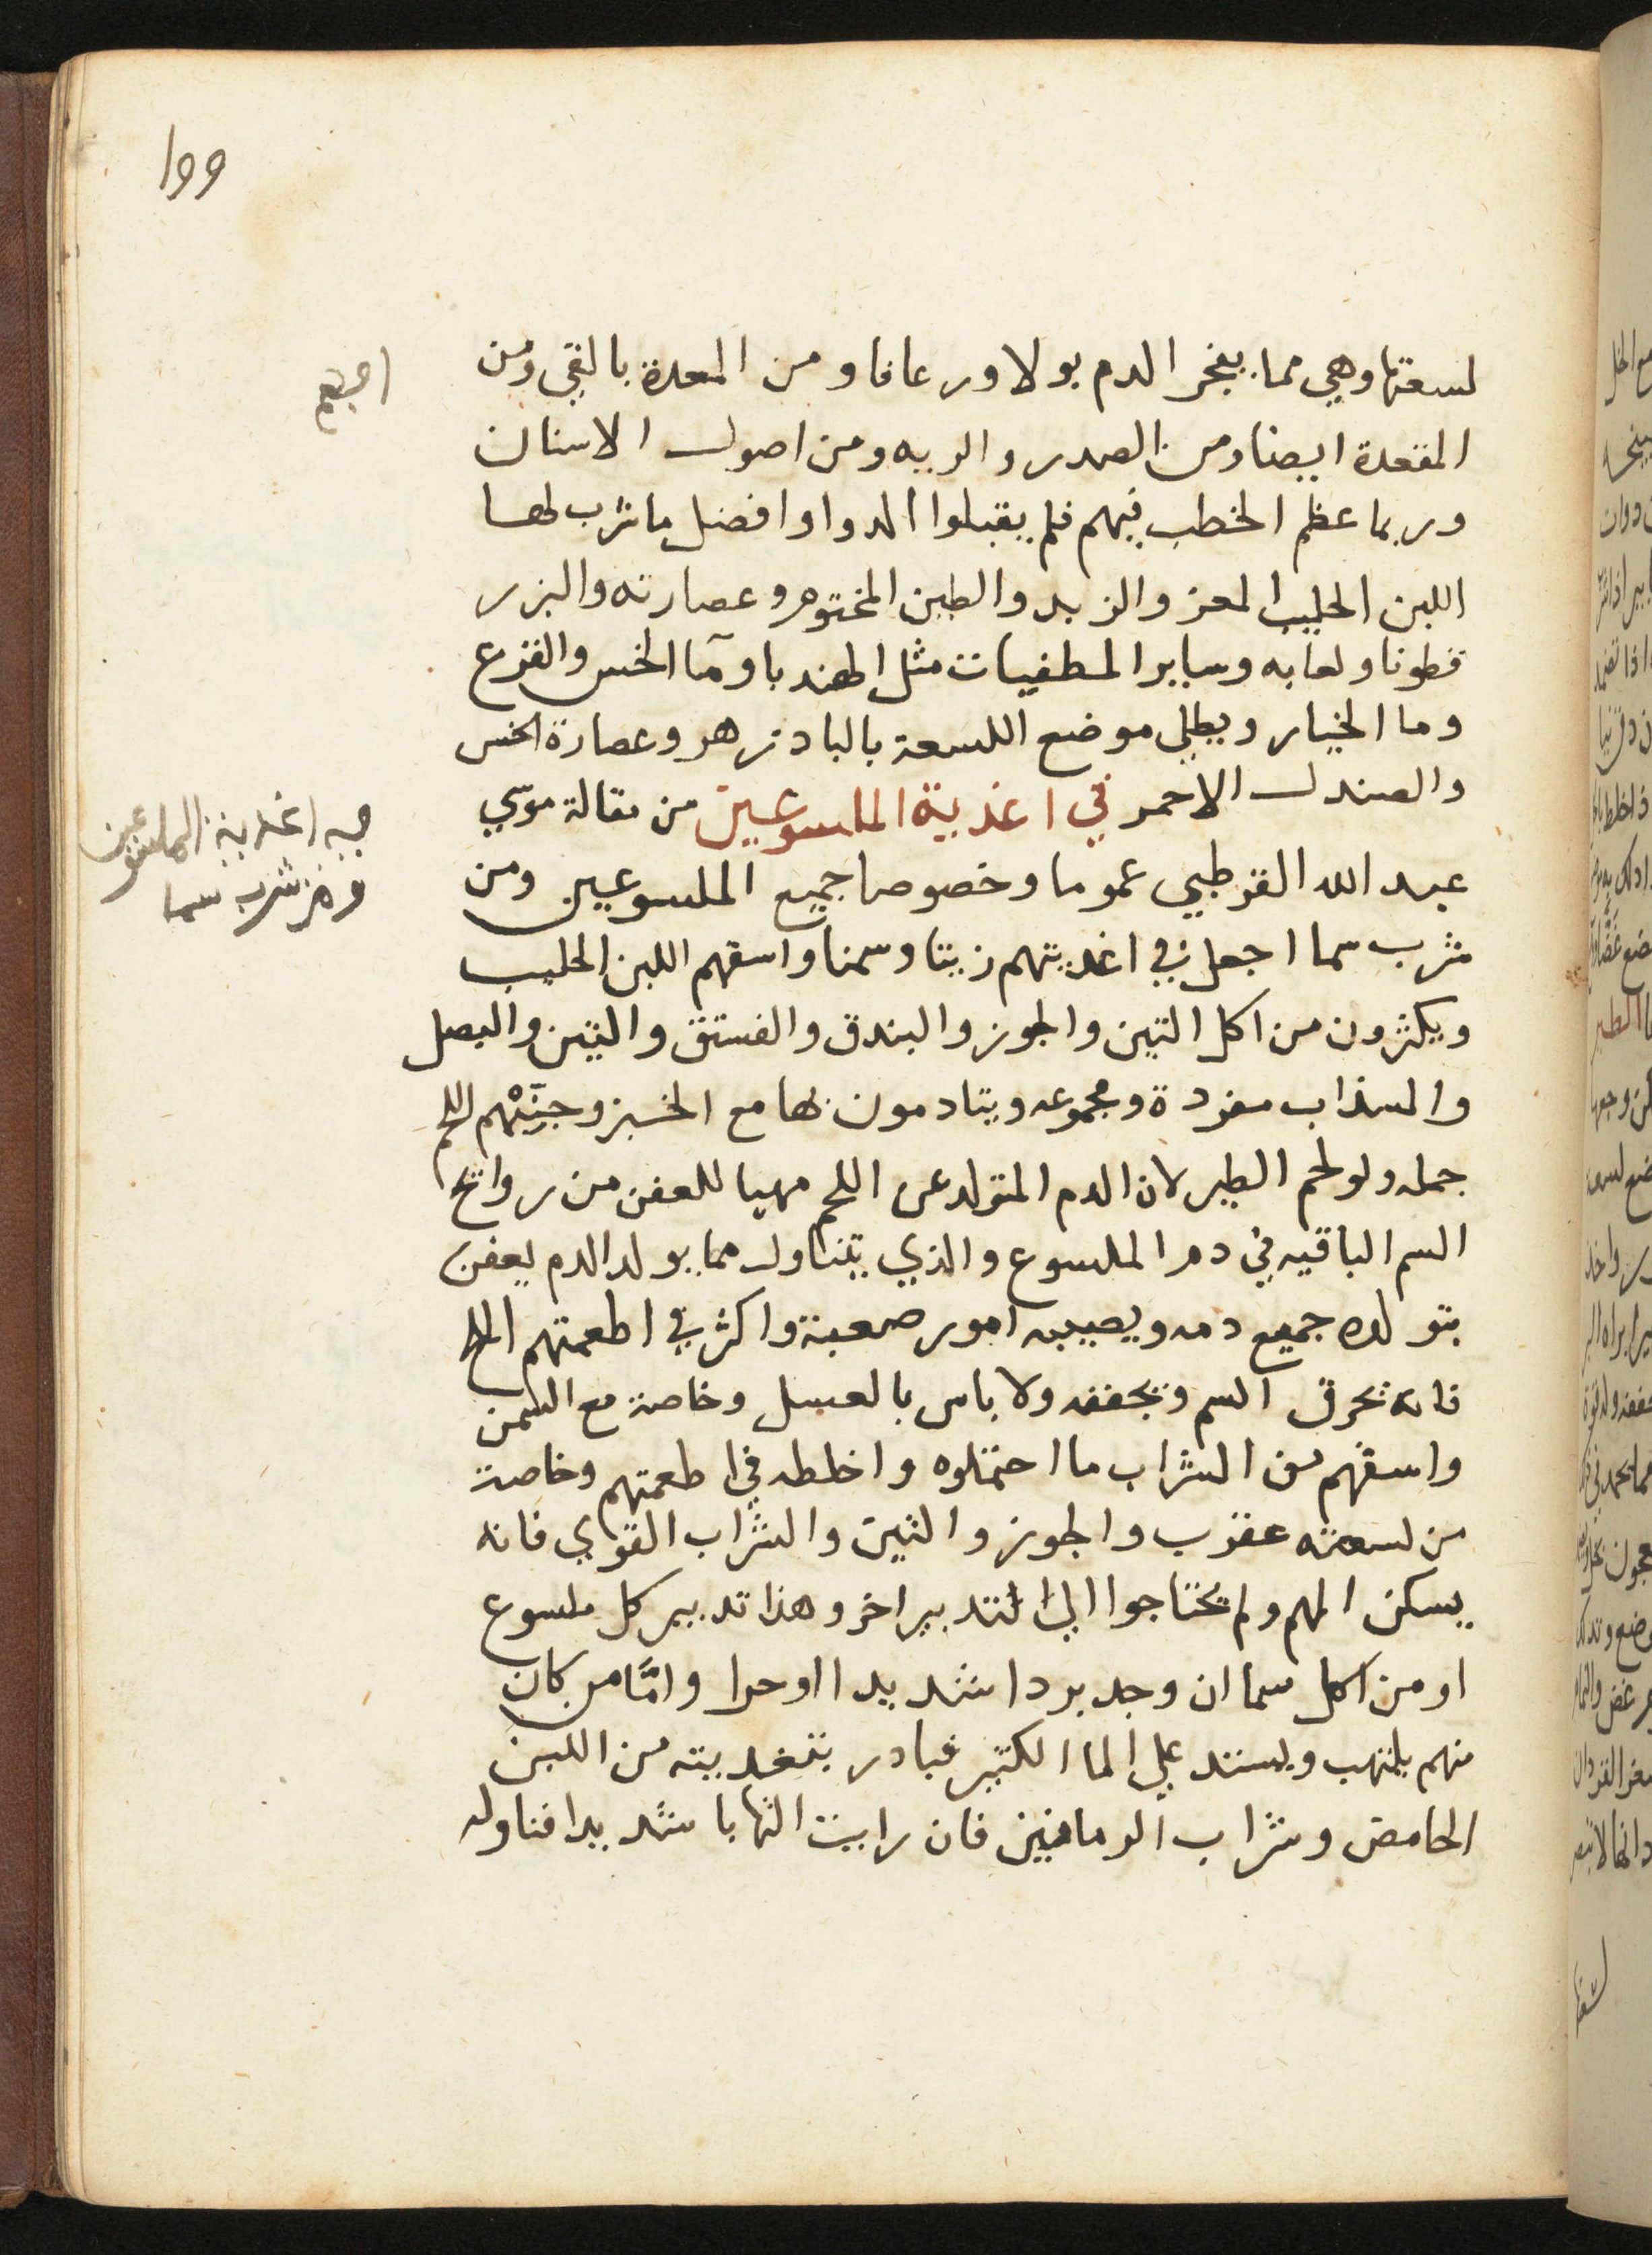 199
لسعتها وهي مما يفجر الدم بولا ورعافا ومن المعدة بالقي ومن
المقعدة ايضا ومن الصدر والريه ومن اصول الاسنان
وربما عظم الخطب فيهم فلم يقبلوا الدوا وافضل ما شرب لها
اللبن الحليب المعز والزبد والطين المختوم وعصارته والبزر
قطونا ولعابه وساير المطفيات مثل الهندبا وما الخس والقرع
وما الخيار ويطلي موضع اللسعة بالبادزهر وعصارة الخس
والصندل الاحمر في اغذية الملسوعين من مقالة موسي
فيه اغذية الملسوعين
ومن شرب سما
عبد الله القرطبي عموما وخصوصا جميع الملسوعين ومن
شرب سما اجعل في اغذيتهم زيتا وسمنا واسقهم اللبن الحليب
ويكثرون من اكل التين والجوز والبندق والفستق والتين والبصل
والسذاب مفردة ومجموعه ويتادمون بها مع الخبز وجنبهم اللحم
جمله ولو لحم الطير لان الدم المتولد عن اللحم مهيا للعفن من روائح
السم الباقيه في دم الملسوع والذي يتناول مما يولد الدم يعفن
بتولده جميع دمه ويصيبه امور صعبة واكثر في اطعمتهم الملح
فانه يحرق السم ويجففه ولا باس بالعسل وخاصة مع السمن
واسقهم من الشراب ما احتملوه واخلطه في اطعمتهم وخاصة
من لسعته عقرب والجوز والتين والشراب القوي فانه
يسكن المهم ولم يحتاجوا الي تدبير اخر وهذا تدبير كل ملسوع
او من اكل سما ان وجد بردا شديدا او حرا واما من كان
منهم يلتهب ويستند علي الما الكثير فبادر بتغديته من اللبن
الحامض وشراب الرمانين فان رايت التهابا شديدا فناوله